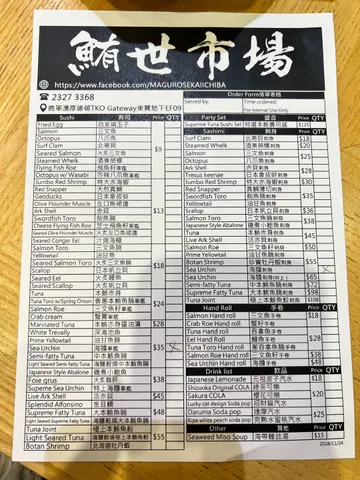 鮪世市場
https://www.facebook.com/MAGUROSEKAIICHIBA
2327 3368
將軍澳厚德邨TKO Gateway東翼地下EF09
Order Form落單表格
Served by:
Time ordered:
For Internal Use Only
Sushi 壽司 Price QTY
Fried Egg 自家燒玉子
Salmon 三文魚
Octopus 八爪魚
Surf Clam 北寄貝 $9
Seared Salmon 火炙三文魚
Steamed Whelk
Flying Fish Roe
Octopus w/Wasabi
Jumbo Red Shrimp 特大赤海蝦
Red Snapper 天然真鯛
Geoducks 日本象拔蚌
Olive Flounder Muscle 左口魚裙邊
Ark Shell 赤貝 $13
Swordfish Toro 劍魚腩
Cheese Flying Fish Roe
Seared Olive Flounder Muscle 火炙左口魚裙邊
Seared Conger Eel
Salmon Toro 三文魚腩
Yellowtail 油甘魚
Seared Salmon Toro 火炙三文魚腩
Scallop 日本帆立貝 $18
Seared Eel 火炙鰻魚
Seared Scallop 火炙帆立貝
Tuna
Tuna Toro w/Spring Onion $24
Salmon Roe 三文魚籽
Crab cream 蟹膏軍艦
Marinated Tuna $28
White Trevally 深海池魚
Prime Yellowtail
Sea Urchin 海膽軍艦 $35
Semi-fatty Tuna 中本鮪魚腩
Light Seared Semi-fatty Tuna
Japanese Style Abalone 磯煮小鮑魚
Foie grus 火炙鵝肝 $38
Supeme Sea Urchin
Live Ark Shell 活赤貝 $45
Splendid Alfonsino 金目鯛
Supreme Fatty Tuna 大本鮪魚腩 $48
Light Seared Supreme Fatty Tuna
Tuna Joint
Light Seared Tuna $55
Botan Shrimp 北海道牡丹蝦
Party Set 盛合 Price QTY
Supreme Tuna Sushi Set $125
Sashimi 刺身 Price QTY
Surf Clam 北寄貝刺身 $18
Steamed Whelk $20
Octopus 八爪魚刺身
Ark Shell 赤貝刺身
Tresus keenae 日本象拔蚌刺身
Jumbo Red Shrimp 特大赤海蝦刺身 $30
Red Snapper
Swordfish Toro 劍魚腩刺身
Yellowtail 油甘魚刺身
Scallop 日本帆立貝刺身 $36
Japanese Style Abalone 磯煮小鮑魚刺身
Tuna
Live Ark Shell 活赤貝刺身 $45
Salmon Toro 三文魚腩刺身
Prime Yellowtail
Botan Shrimp $55
Sea Urchin 海膽刺身
Sea Urchin $65
Semi-fatty Tuna 中本鮪魚腩刺身 $72
Supreme Fatty Tuna 大本鮪魚腩刺身 $98
Tuna Joint $108
Hand Roll 手卷 Price QTY
Salmon Hand roll 三文魚手卷 $18
Crab Roe Hand roll 蟹籽手卷
Tuna Hand roll
Eel Hand roll 鰻魚手卷
Tuna Toro Hand roll
Salmon Roe Hand roll 三文魚籽手卷 $38
Sea Urchin Hand roll 海膽手卷 $48
Drink list 飲品 Price QTY
Japanese Lemonade 元祖波子汽水 $18
Shizuoka Original COLA
Sakura COLA 櫻花可樂 $20
Lucky cat design Soda pop 招財貓汽水
Daruma Soda pop 達摩汽水 $25
Ripe white peach soda pop
Other 其他 Price QTY
Seaweed Miso Soup $15
2018/11/24